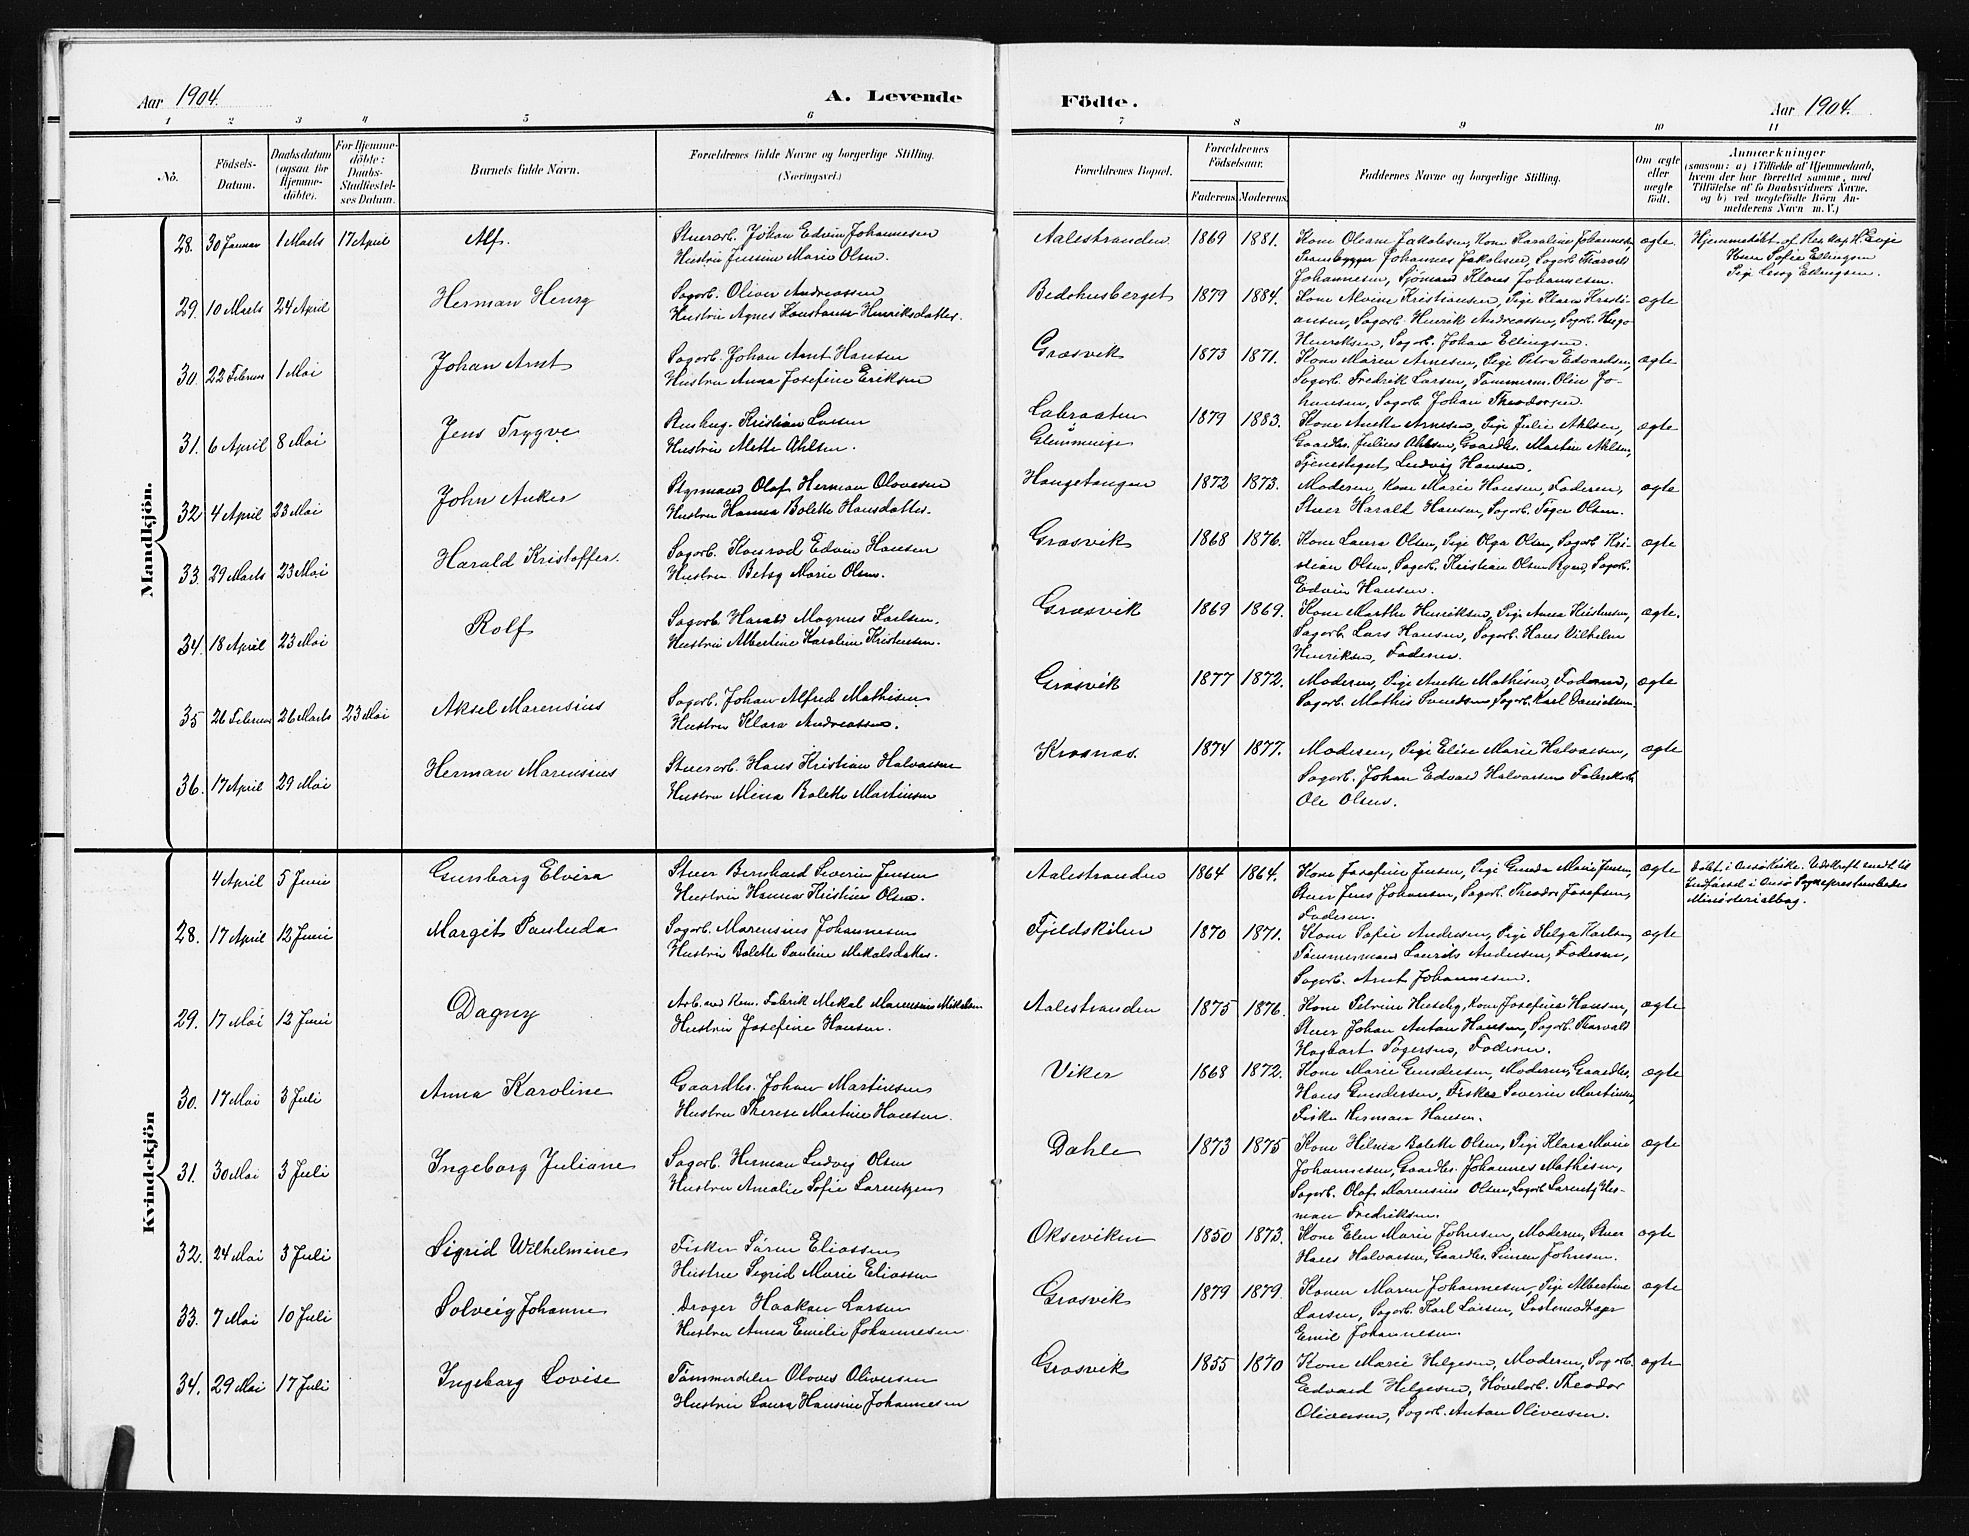 Aar 1904.
A. Levende Födte.
Aar 1904.
1 2 3 4 5 6 7 8 9 10 11
No.
Födsels-Datum.
Daabsdatum (ogsaa for Hjemmedöbte).
For Hjemmedöbte: Daabs-Stadfæstelses Datum.
Barnets fulde Navn.
Forældrenes fulde Navne og borgerlige Stilling.
(Næringsvei.)
Forældrenes Bopæl.
Forældrenes Födselsaar.
Faderens. Moderens.
Faddernes Navne og borgerlige Stilling.
Om ægte eller uægte födt.
Anmærkninger
(saasom: a) i Tilfælde af Hjemmedaab,
hvem der har forrettet samme, med
Tilföielse af to Daabsvidners Navne.
og b) ved uægtefödte Börn Anmelderens Navn m. V.)
Mandkjön.
28. 30 Januar 1 Marts 17 April Alf. Stuerarb. Johan Edvin Johannesen
Hustru Jensine Marie Olsen.
Aalestranden 1869 1881. Kone Oleane Jakobsen, Kone Karoline Johannesen, ægte.
Johannes Jakobsen, Sagarb. Tharvald
Johannesen, Sjömand Klaus Johannesen.
Hjemmedöbt af H. Evje
Sofie Ellingsen
Pige Ellingsen.
29. 10 Marts 24 April Herman Henry Sagarb. Oliver Andreassen
Hustru Agnes Konstanse Henriksdatter.
Bedehusberget 1879 1884. Kone Alvine Kristiansen, Pige Klara Kristi- ægte
ansen, Sagarb. Henrik Andreassen, Sagarb. Hugo
Henriksen, Sagarb. Johan Ellingsen.
30. 22 Februar 1 Mai Johan Arnt Sagarb. Johan Arnt Hansen
Hustru Anna Josefine Eriksen
Græsvik 1873 1871. Kone Maren Arnesen, Pige Petra Edvardsen, ægte
Sagarb. Fredrik Larsen, Tømmerm. Olin Jo-
hansen, Sagarb. Johan Theodorsen.
31. 6 April 8 Mai Jens Trygve Kristian Larsen
Hustru Alette Ahlsen.
Labraaten
Glemminge 1879 1883. Kone Anette Arnesen, Pige Julie Ahlsen, ægte
Gaardbr. Julius Ahlsen, Gaardbr. Martin Ahlsen,
Tjenestegut Ludvig Hansen.
32. 4 April 23 Mai John Anker Styrmand Olaf Herman Olavesen
Hustru Hanna Bolette Hansdatter.
Haugetangen 1872 1873. Moderen, Kone Marie Hansen, Faderen, ægte
Stuer Harald Hansen, Sagarb. Tøger Olsen.
33. 29 Marts 23 Mai Harald Kristoffer. Sagarb. Konrad Edvin Hansen
Hustru Betsy Marie Olsen.
Græsvik 1868 1876. Kone Laura Olsen, Pige Olga Olsen, Sagarb. Kri- ægte
stian Olsen, Sagarb. Kristian Olsen Ryen, Sagarb.
Edvin Hansen.
34. 18 April 23 Mai Rolf Sagarb. Harald Magnus Karlsen.
Hustru Albertine Karoline Kristensen.
Græsvik 1869 1869. Kone Marthe Henriksen, Pige Anna Kristensen, ægte.
Sagarb. Lars Hansen, Sagarb. Hans Vilhelm
Henriksen, Faderen.
35 26 Februar 26 Marts 23 Mai Aksel Marensius Sagarb. Johan Alfred Mathisen
Hustru Klara Andreassen.
Græsvik 1877 1872. Moderen, Pige Anette Mathisen, Faderen, ægte
Sagarb. Mathis Svendsen, Sagarb. Karl Danielsen.
36. 17 April 29 Mai Herman Marensius Stuerarb. Hans Kristian Halvarsen
Hustru Mina Bolette Martinsen
Krosnæs. 1874 1877. Moderen, Pige Elise Marie Halvarsen, ægte
Sagarb. Johan Edvard Halvarsen Fabrikarb.
Ole Olsen.
Kvindekjön
4 April 5 Juni Gunborg Elvira Stuer Bernhard Severin Jensen
Hustru Hanna Kristine Olsen.
Aalestranden 1864 1864. Kone Josefine Jensen, Pige Gunda Marie Jensen, ægte
Stuer Jens Johansen, Sagarb. Theodor Josefsen,
Faderen.
Döbt i Onsö Kirke. Udskrift sendt til
Indförsel i Onsö Sogneprestembedes
Ministerialbog.
28. 17 April 12 Juni Margit Paulinda Sagarb. Marensius Johannesen
Hustru Bolette Pauline Mikalsdatter.
Fjeldskilen 1870 1871. Kone Sofie Andersen, Pige Helga Karlsen, ægte
Tömmermand Laurits Andersen, Faderen,
Sagarb. Arnt Johannesen.
29. 17 Mai 12 Juni Dagny Arb. ved Kem. Fabrik Mekal Marensius Mikalsen
Hustru Josefine Hansen.
Aalestranden 1875 1876. Kone Petrine Huseby, Kone Josefine Hansen, ægte
Stuer Johan Anton Hansen, Sagarb. Tharvald
Hagbart Tögersen, Faderen.
30. 17 Mai 3 Juli Anna Karoline Gaardbr. Johan Martinsen
Hustru Therese Martine Hansen.
Viker 1868 1872. Kone Marie Gundersen, Moderen, Gaardbr. ægte
Hans Gundersen, Fisker Severin Martinsen,
Fisker Herman Hansen.
31. 30 Mai 3 Juli Ingeborg Juliane Sagarb. Herman Ludvig Olsen
Hustru Amalie Sofie Larentzen
Dahle 1873 1875 Kone Hilma Bolette Olsen, Pige Klara Marie ægte
Johannesen, Gaardbr. Johannes Mathisen,
Sagarb. Olaf Marensius Olsen, Sagarb. Larentz Her-
man Fredriksen.
32. 24 Mai 3 Juli Sigrid Wilhelmine Fisker Sören Eliassen
Hustru Sigrid Marie Eliassen
Okseviken 1850 1873. Kone Elen Marie Johnsen, Moderen, Stuer ægte
Hans Halvarsen, Gaardbr. Simen Johnsen.
33. 7 Mai 10 Juli Solveig Johanne Drager Haakon Larsen
Hustru Anna Emilie Johannesen.
Græsvik 1879 1879. Konen Maren Johannesen, Pige Albertine ægte
Larsen, Sagarb. Karl Larsen,
Emil Johannesen.
34. 29 Mai 17 Juli Ingeborg Lovise Tömmerdeler Olaves Oliversen
Hustru Laura Hansine Johannesen
Græsvik 1855 1870 Kone Marie Helgesen, Moderen, Sagarb. ægte
Edvard Helgesen, Hövelarb. Theodor
Oliversen, Sagarb. Anton Oliversen.